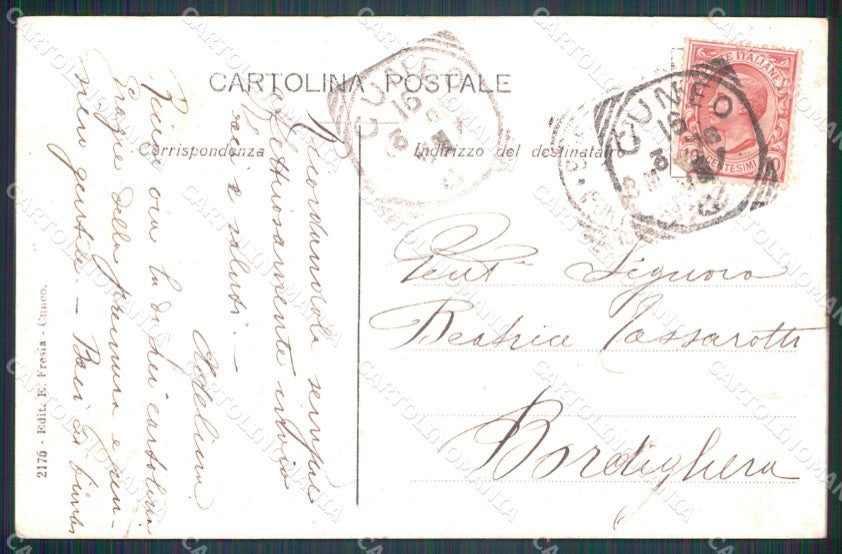 CARTOLINA POSTALE
Corrispondenza
Indirizzo del destinatario
CUNEO
16
CUNEO
16
POSTE ITALIANE
CENTESIMI 10
Gent. Signora
Beatrice Tassarotti
Bordighera
Ricordandola sempre
affettuosamente invio
baci e saluti. —
Adelina
Ricevo ora la di Lei cartolina
Grazie della premura e pen-
siero gentile. — Baci da
2175 - Edit. E. Fresia - Cuneo.
CARTOLINOMANIA